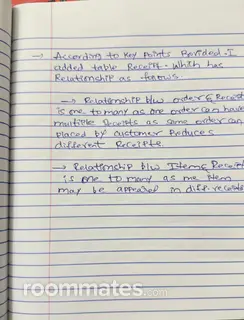 → According to Key Points Revided. I
added table Receipt. which has
Relationship as follows
→ Relationship b/w order & Receipt
is one to many as one order can have
multiple Receipts as same order can
placed by customer Produces
different Receipts.
→ Relationship b/w Item & Receipt
is one to many as one item
may be appeared in diff. receipts
roommates.com